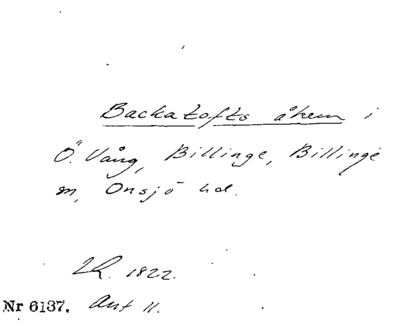 Backatofts åkern i
Ö. Vång, Billinge, Billinge
sn, Onsjö hd.
LR. 1822.
Nr 6137. Akt 11.